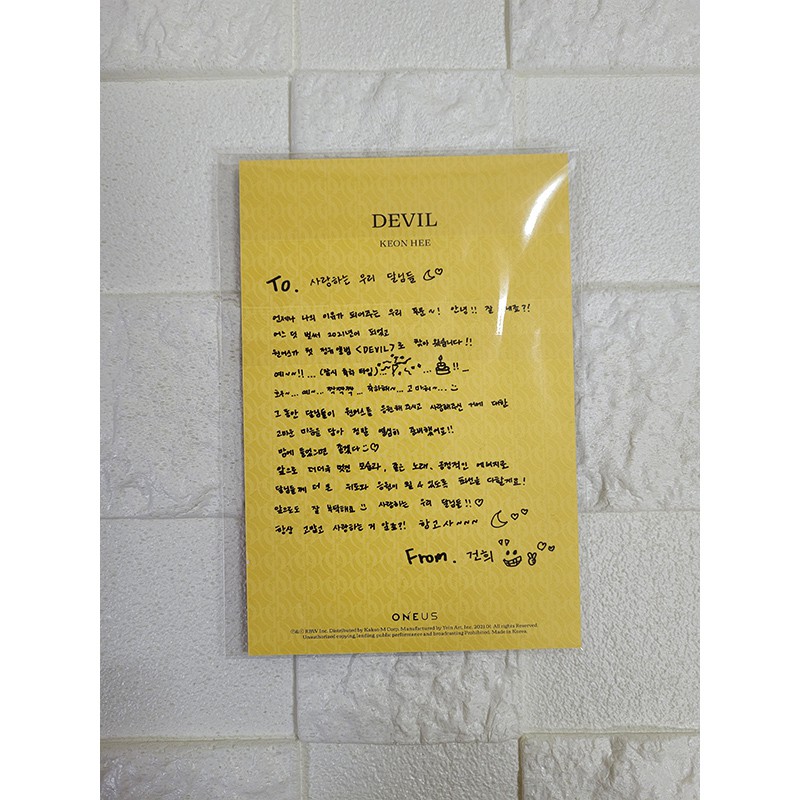 DEVIL
KEON HEE
To. 사랑하는 우리 달님들
언제나 나의 이유가 되어주는 우리 투문~! 안녕!! 잘 지내죠?!
어느 덧 벌써 2021년이 되었고
원어스가 첫 정규앨범 <DEVIL>로 찾아 왔습니다!!
예~~!!... (잠시 축하 타임) ... !!
호우~... 예~... 짝짝짝... 축하해~... 고마워~...
그동안 달님들이 원어스를 응원해주시고 사랑해주신 거에 대한
고마운 마음을 담아 정말 열심히 준비했어요!!
맘에 들었으면 좋겠다
앞으로 더더욱 멋진 모습과, 좋은 노래, 긍정적인 에너지로
달님들께 더 큰 위로와 응원이 될 수 있도록 최선을 다할게요!
앞으로도 잘 부탁해요 사랑하는 우리 달님들!!
항상 고맙고 사랑하는 거 알죠?! 항고사~~~
From. 건희
ONEUS
Ⓟ&© RBW Inc. Distributed by Kakao M Corp. Manufactured by Yein Art, Inc. 2021.01. All rights Reserved.
Unauthorized copying, lending, public performance and broadcasting Prohibited. Made in Korea.